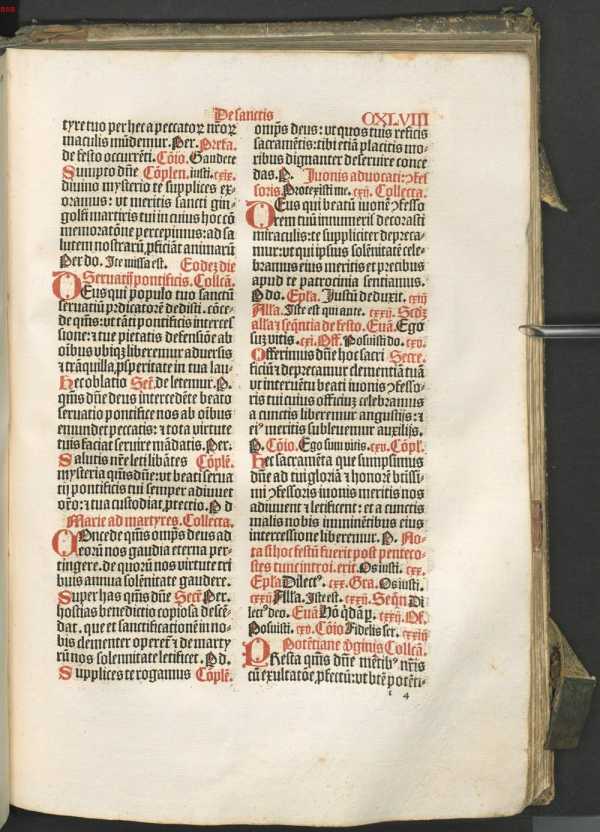 De sanctis
CXLVIII
tyre tuo per hec a peccatoꝝ nr̄oꝝ
maculis mūdemur. Per. Prefa.
de festo occurrēti. Cōio. Gaudete
Sumpto dn̄e Cōplen. iusti. cxix.
diuino mysterio te supplices ex-
oramus: vt meritis sancti gin-
golfi martiris tui in cuius hoc cō
memoratōne percepimus: ad sa
lutem nostrarū ꝓficiāt animarū
Per do. Ite missa est. Eodez die
Seruatij pontificis. Collcā.
DEus qui populo tuo sanctū
seruatiū p̄dicatorē dedisti. cōce-
de qm̄s: vt tāti pontificis interces
sione: ⁊ tue pietatis defensiōe ab
oībus vbiqꝫ liberemur aduersis
⁊ trāquilla ꝓsperitate in tua lau-
Hec oblatio Secͬ. de letemur. P.
qm̄s dn̄e deus intercedēte beato
seruatio pontifice nos ab oībus
emundet peccatis: ⁊ tota virtute
tuis faciat seruire mādatis. Per.
Salutis nr̄e leti libātes Cōplē.
mysteria qm̄s dn̄e: vt beati serua
tij pontificis tui semper adiuuet
or̄o: ⁊ tua custodiat ꝓtectio. P d
Marie ad martyres. Collecta.
COncede qm̄s omīps deus ad
eorū nos gaudia eterna per-
tingere. de quorū nos virtute tri
buis annua solēnitate gaudere.
Super has qm̄s dn̄e Secͬ Per.
hostias benedictio copiosa descē-
dat. que et sanctificationē in no-
bis clementer operet̄: ⁊ de marty
rū nos solennitate letificet. Pd.
Supplices te rogamus Cōplē.
omīps deus: vt quos tuis reficis
sacramētis: tibi etiā placitis mo-
ribus dignanter deseruire conce
das. P. Iuonis aduocati: ꝯfes
soris. Protexisti me. cxij. Collecta.
DEus qui beatū iuonē ꝯfesso
rem tuū innumeris decorasti
miraculis: te suppliciter depreca-
mur: vt qui ipsius solēnitatē cele-
bramus eius meritis et precibus
apud te patrocinia sentiamus.
P do. Epl̄a. Iustū deduxit. cxiij
Alla. Iste est qui ante. cxxij. Scd̄z
alla ⁊ seq̄ntia de festo. Euā. Ego
suꝫ vitis. cxi. Off. Posuisti do. cxv.
Offerimus dn̄e hoc sacri Secre.
ficiū ⁊ deprecamur clementiā tuā
vt interuētu beati iuonis ꝯfesso-
ris tui cuius officiuꝫ celebramus
a cunctis liberemur angustijs: ⁊
eiꝰ meritis subleuemur auxilijs.
P. Cōio. Ego sum vitis. cxv. Cōpl.
Hec sacramēta que sumpsimus
dn̄e ad tui gloriā ⁊ honorē btissi-
mi ꝯfessoris iuonis meritis nos
adiuuent ⁊ letificent: et a cunctis
malis nobis imminētibus eius
intercessione liberemur. P. No-
ta si hoc festū fuerit post penteco-
stes tunc introi. erit. Os iusti. cxx.
Epl̄a Dilectꝰ. cxx. Gra. Os iusti.
cxxij Alla. Iste est. cxxij. Seq̄n Di
lectꝰ deo. Euā Uō qdā p. cxxij. Of.
Posuisti. cxv. Cōio Fidelis ser. cxxiij
Potētiane v̓ginis Collcā.
PResta qm̄s dn̄e mētibꝰ nr̄is
cū exultatōe ꝓfectū: vt btē potēti-
t 4